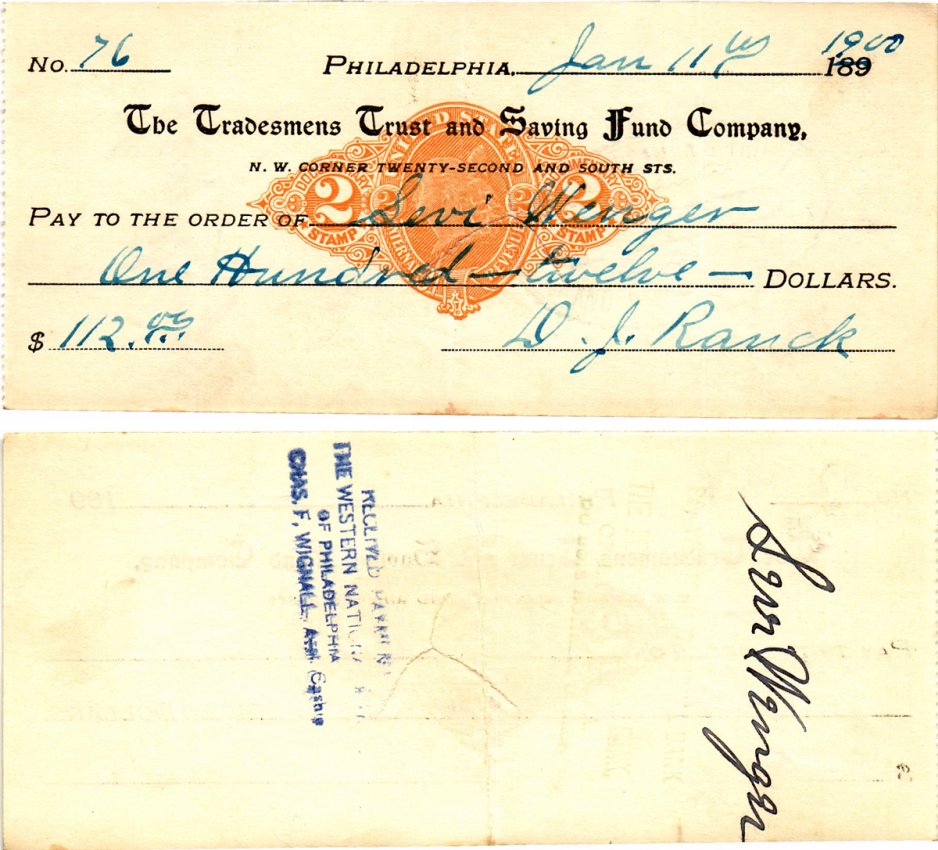 No. 76 Philadelphia, Jan 11th 1900 189
The Tradesmens Trust and Saving Fund Company,
N. W. CORNER TWENTY-SECOND AND SOUTH STS.
UNITED STATES
2 2 2 2
STAMP STAMP
INTERNAL REVENUE
PAY TO THE ORDER OF Levi Wenger
One Hundred — twelve — DOLLARS.
$ 112.00 D. J. Ranck
RECEIVED
THE WESTERN NATIONAL
OF PHILADELPHIA
CHAS. F. WIGNALL, Asst. Cashie
Levi Wenger